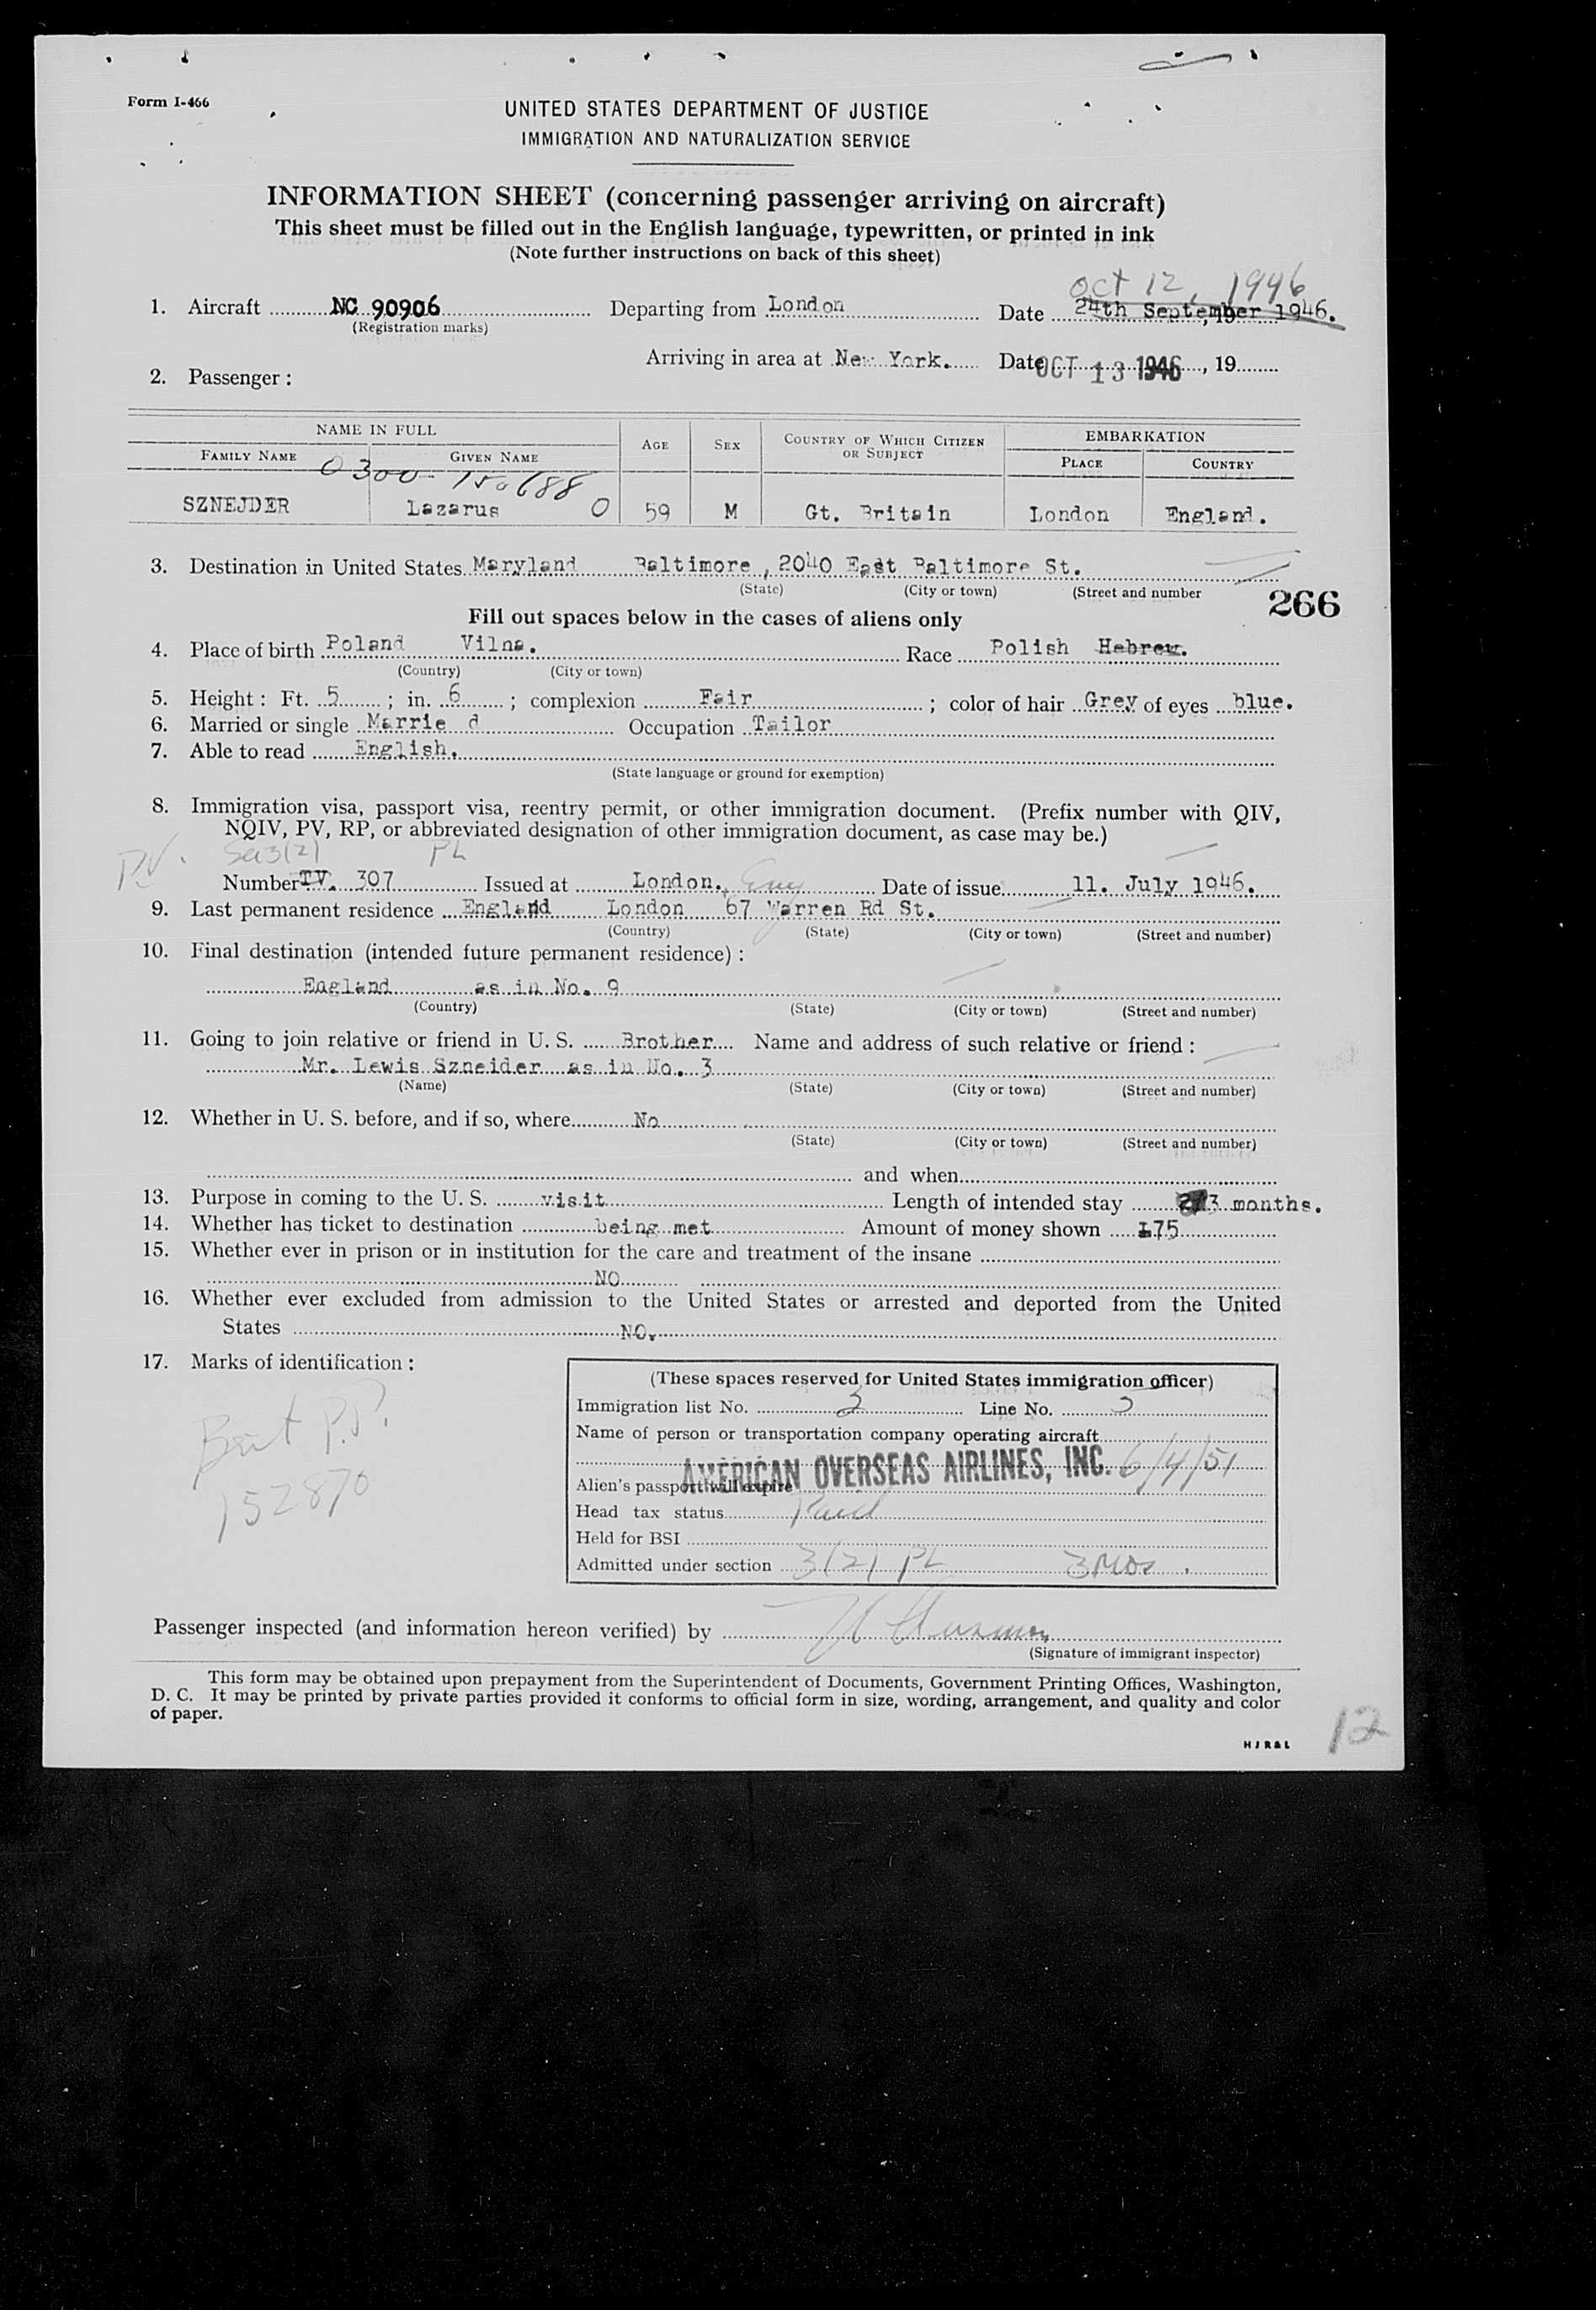 Form I-466
UNITED STATES DEPARTMENT OF JUSTICE
IMMIGRATION AND NATURALIZATION SERVICE
INFORMATION SHEET (concerning passenger arriving on aircraft)
This sheet must be filled out in the English language, typewritten, or printed in ink
(Note further instructions on back of this sheet)
Oct 12, 1946
1. Aircraft NC 90906 Departing from London Date 24th September, 19 1946.
(Registration marks)
Arriving in area at New York. Date OCT 13 1946, 19
2. Passenger:
NAME IN FULL AGE SEX COUNTRY OF WHICH CITIZEN OR SUBJECT EMBARKATION
FAMILY NAME GIVEN NAME PLACE COUNTRY
0300-150688
SZNEJDER Lazarus 0 59 M Gt. Britain London England.
3. Destination in United States Maryland Baltimore, 2040 East Baltimore St.
(State) (City or town) (Street and number
266
Fill out spaces below in the cases of aliens only
4. Place of birth Poland Vilna. Race Polish Hebrew.
(Country) (City or town)
5. Height: Ft. 5; in. 6; complexion Fair; color of hair Grey of eyes blue.
6. Married or single Marrie d Occupation Tailor
7. Able to read English.
(State language or ground for exemption)
8. Immigration visa, passport visa, reentry permit, or other immigration document. (Prefix number with QIV,
NQIV, PV, RP, or abbreviated designation of other immigration document, as case may be.)
PV. Sec 3(2) PL
Number TV. 307 Issued at London. Eng Date of issue 11. July 1946.
9. Last permanent residence England London 67 Warren Rd St.
(Country) (State) (City or town) (Street and number)
10. Final destination (intended future permanent residence):
England as in No. 9
(Country) (State) (City or town) (Street and number)
11. Going to join relative or friend in U. S. Brother Name and address of such relative or friend:
Mr. Lewis Szneider as in No. 3
(Name) (State) (City or town) (Street and number)
12. Whether in U. S. before, and if so, where No
(State) (City or town) (Street and number)
and when
13. Purpose in coming to the U. S. visit Length of intended stay 3 months.
14. Whether has ticket to destination being met Amount of money shown £75
15. Whether ever in prison or in institution for the care and treatment of the insane
NO
16. Whether ever excluded from admission to the United States or arrested and deported from the United
States NO.
17. Marks of identification:
Brit P.P.
152870
(These spaces reserved for United States immigration officer)
Immigration list No. 3 Line No. 5
Name of person or transportation company operating aircraft
AMERICAN OVERSEAS AIRLINES, INC. 6/4/51
Alien's passport will expire
Head tax status Paid
Held for BSI
Admitted under section 3(2) PL 3 Mos.
Passenger inspected (and information hereon verified) by
(Signature of immigrant inspector)
This form may be obtained upon prepayment from the Superintendent of Documents, Government Printing Offices, Washington,
D. C. It may be printed by private parties provided it conforms to official form in size, wording, arrangement, and quality and color
of paper.
H J R & L
12